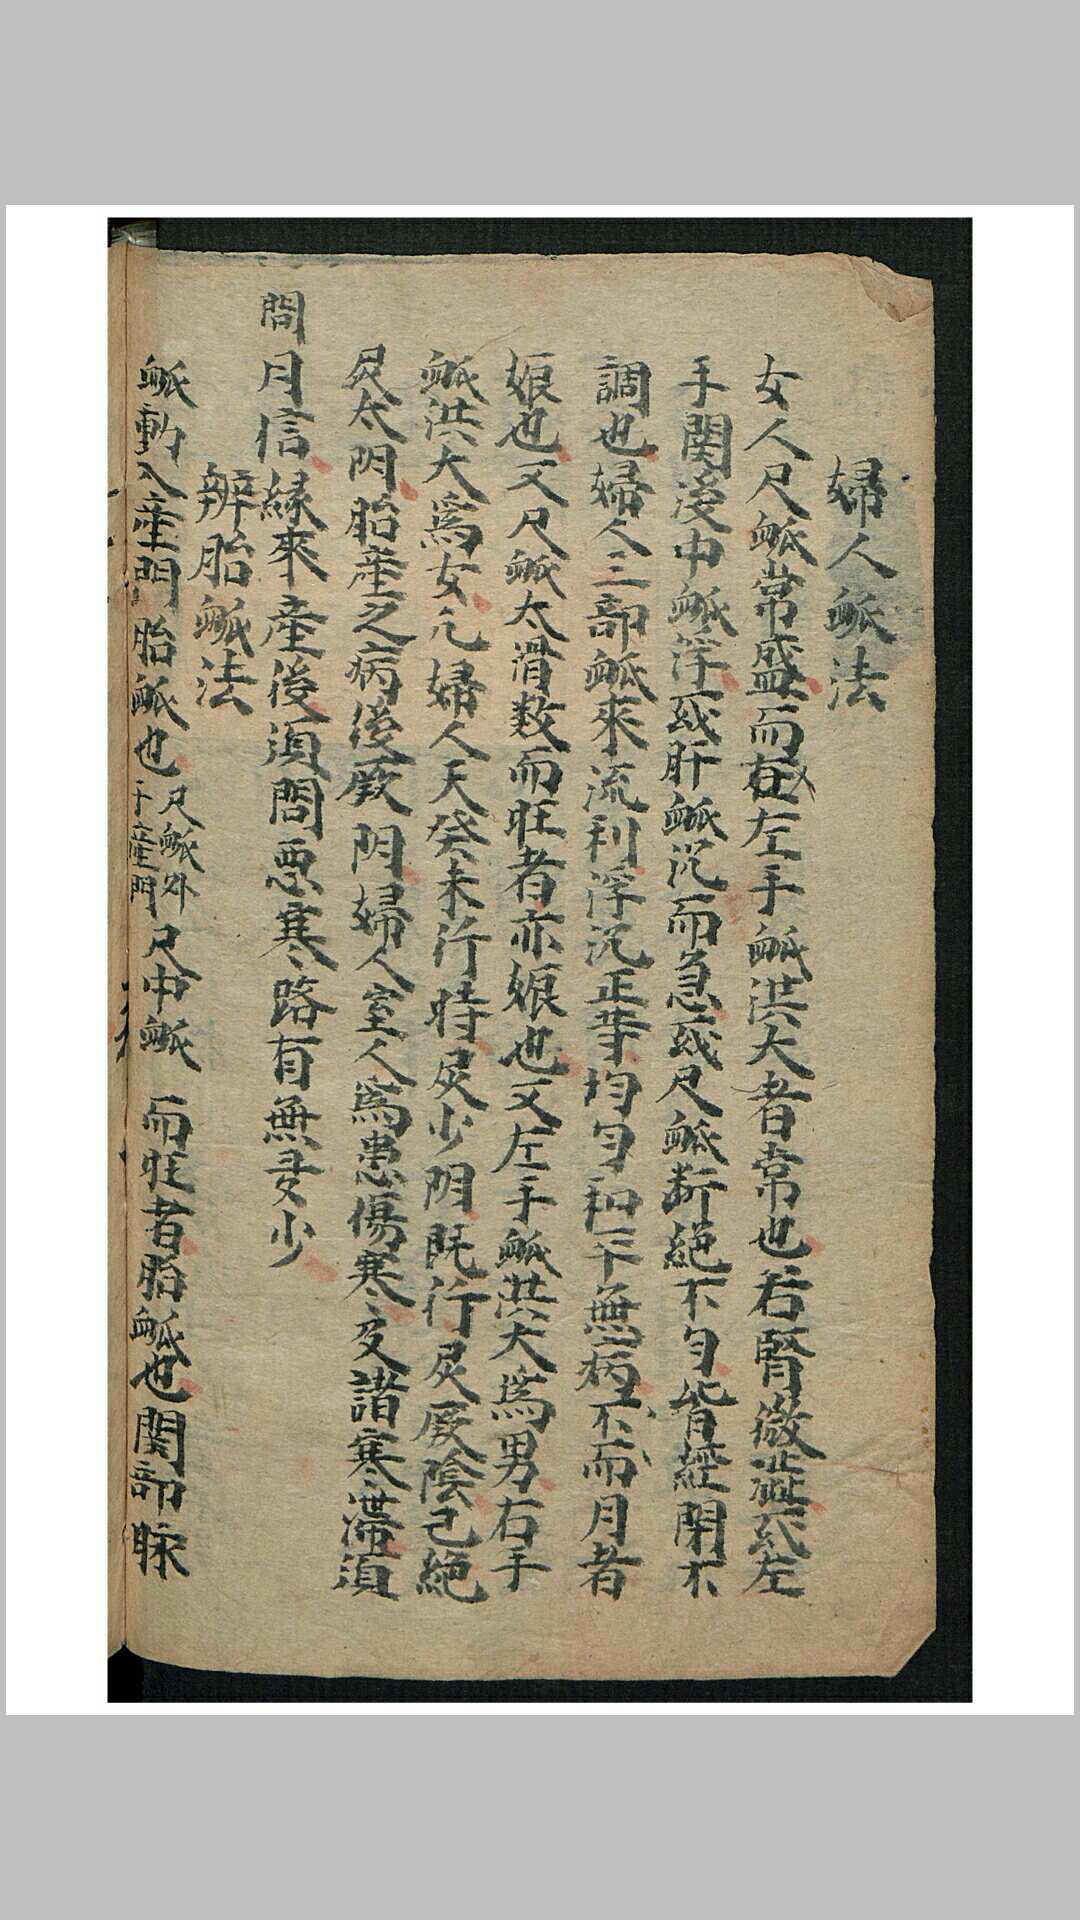 婦人衇法
女人尺衇常盛而在左手衇洪大者常也若腎微澁或左
手関後中衇浮或肝衇沉而急或尺衇断絶不匀皆經閉不
調也婦人三部衇來流利浮沉正等均匀和平無病不而月者
娠也又尺衇太滑数而旺者亦娠也又左手衇洪大爲男右手
衇洪大爲女凢婦人天癸未行時炅少阴既行炅厥陰已絶
炅太阴胎産之病後厥阴婦人室人爲患傷寒及諸寒滞須
問月信縁來産後須問悪寒路有無多少
辨胎衇法
衇動入産門胎衇也尺衇外
産門尺中衇 而旺者胎衇也関部脉